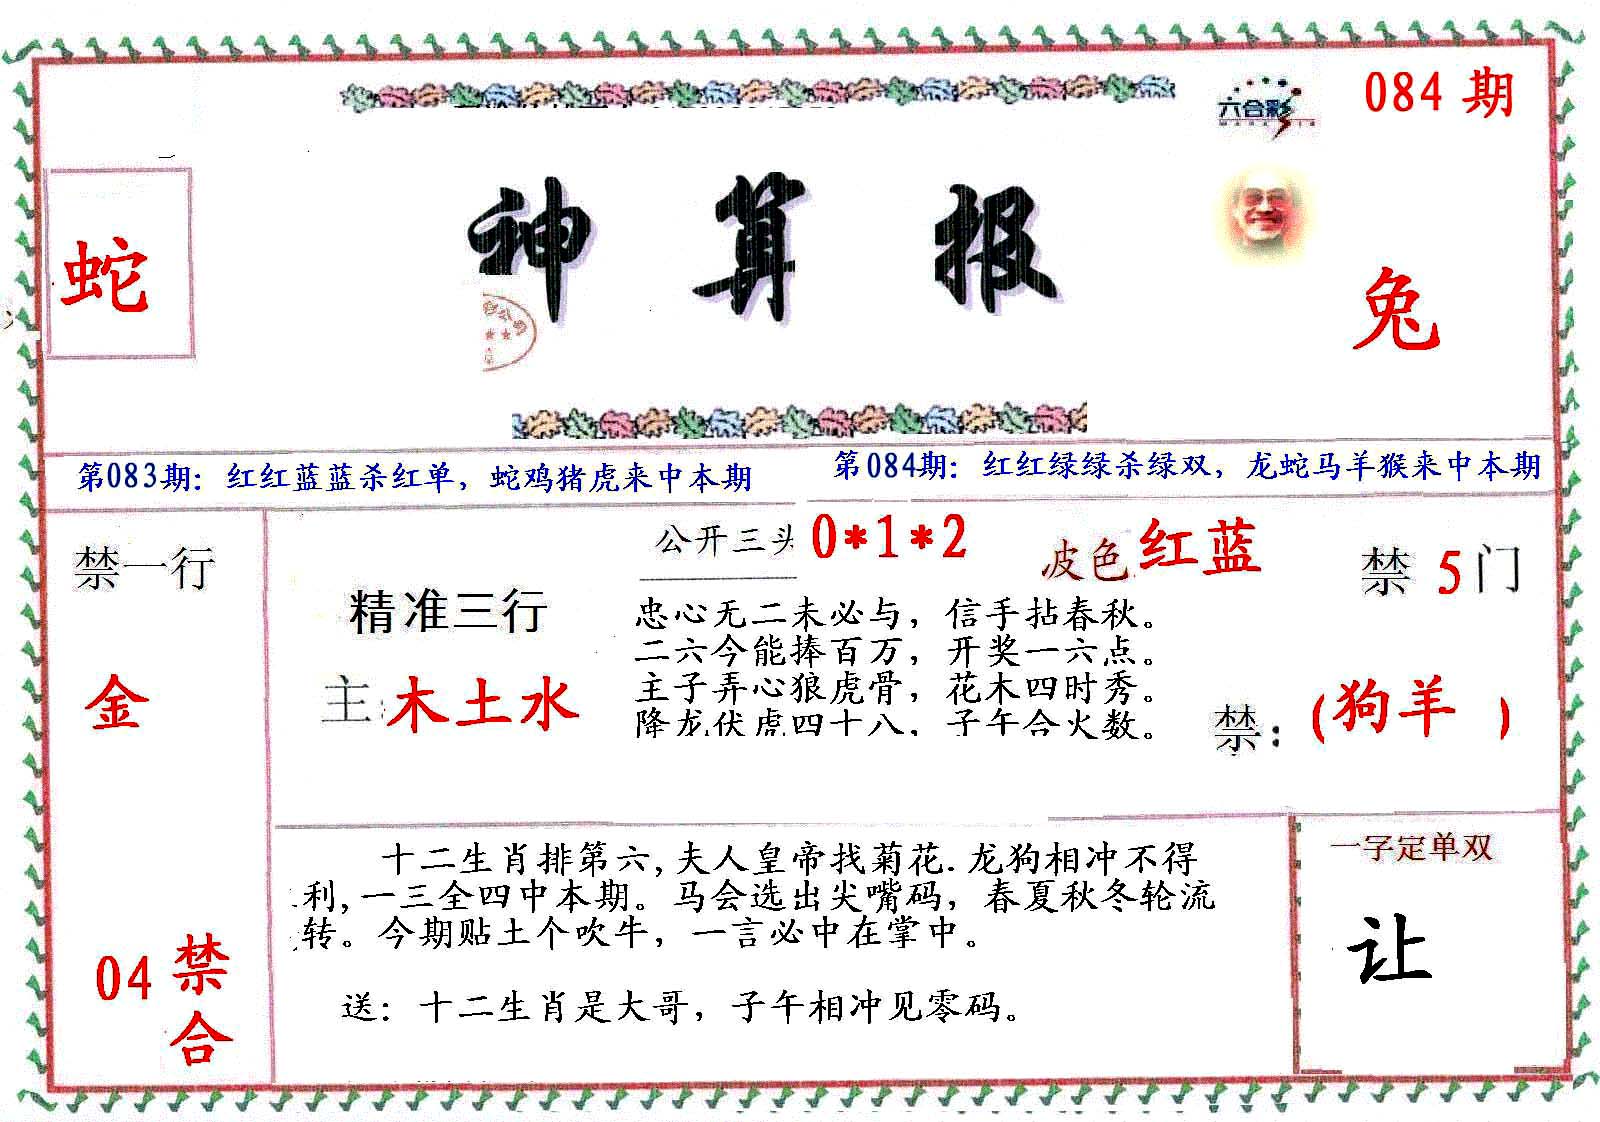 六合彩
084 期
蛇
神算报
兔
第083期：红红蓝蓝杀红单，蛇鸡猪虎来中本期
第084期：红红绿绿杀绿双，龙蛇马羊猴来中本期
禁一行
金
04 禁合
精准三行
主：木土水
公开三头 0*1*2
波色 红蓝
禁 5 门
忠心无二未必与，信手拈春秋。
二六今能捧百万，开奖一六点。
主子弄心狼虎骨，花木四时秀。
降龙伏虎四十八，子午合火数。
禁：(狗羊 )
十二生肖排第六,夫人皇帝找菊花.龙狗相冲不得
利,一三全四中本期。马会选出尖嘴码，春夏秋冬轮流
转。今期贴土个吹牛，一言必中在掌中。
送：十二生肖是大哥，子午相冲见零码。
一字定单双
让